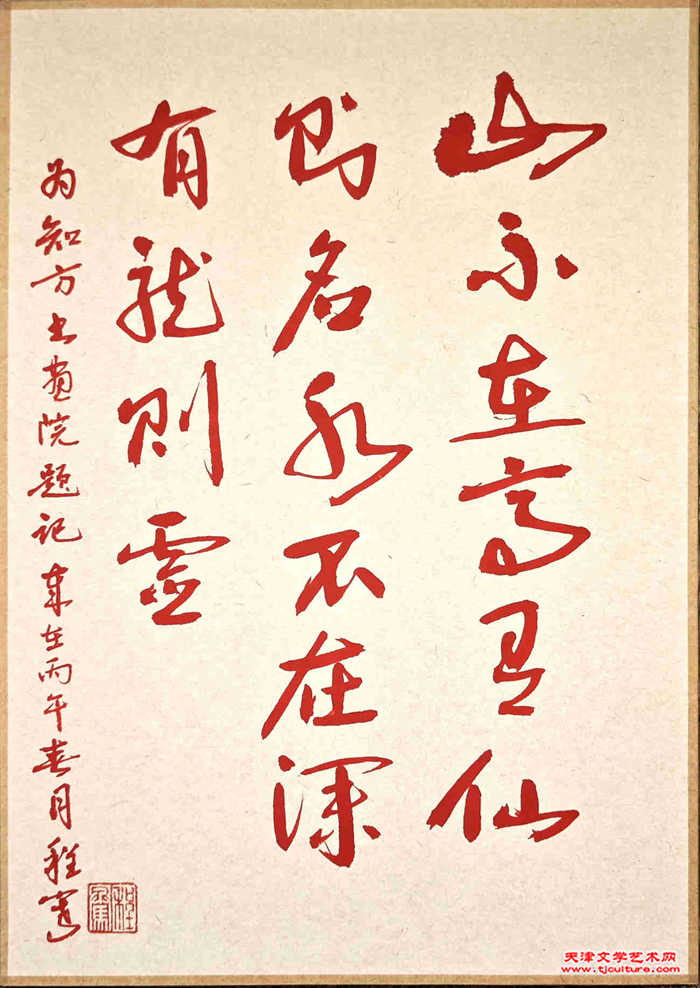 山不在高有仙
则名水不在深
有龙则霊
为知方书画院题记 岁在丙午春月程
天津文学艺术网
www.tjculture.com